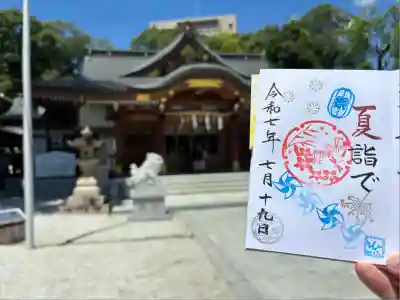 夏詣で
令和七年 七月十九日